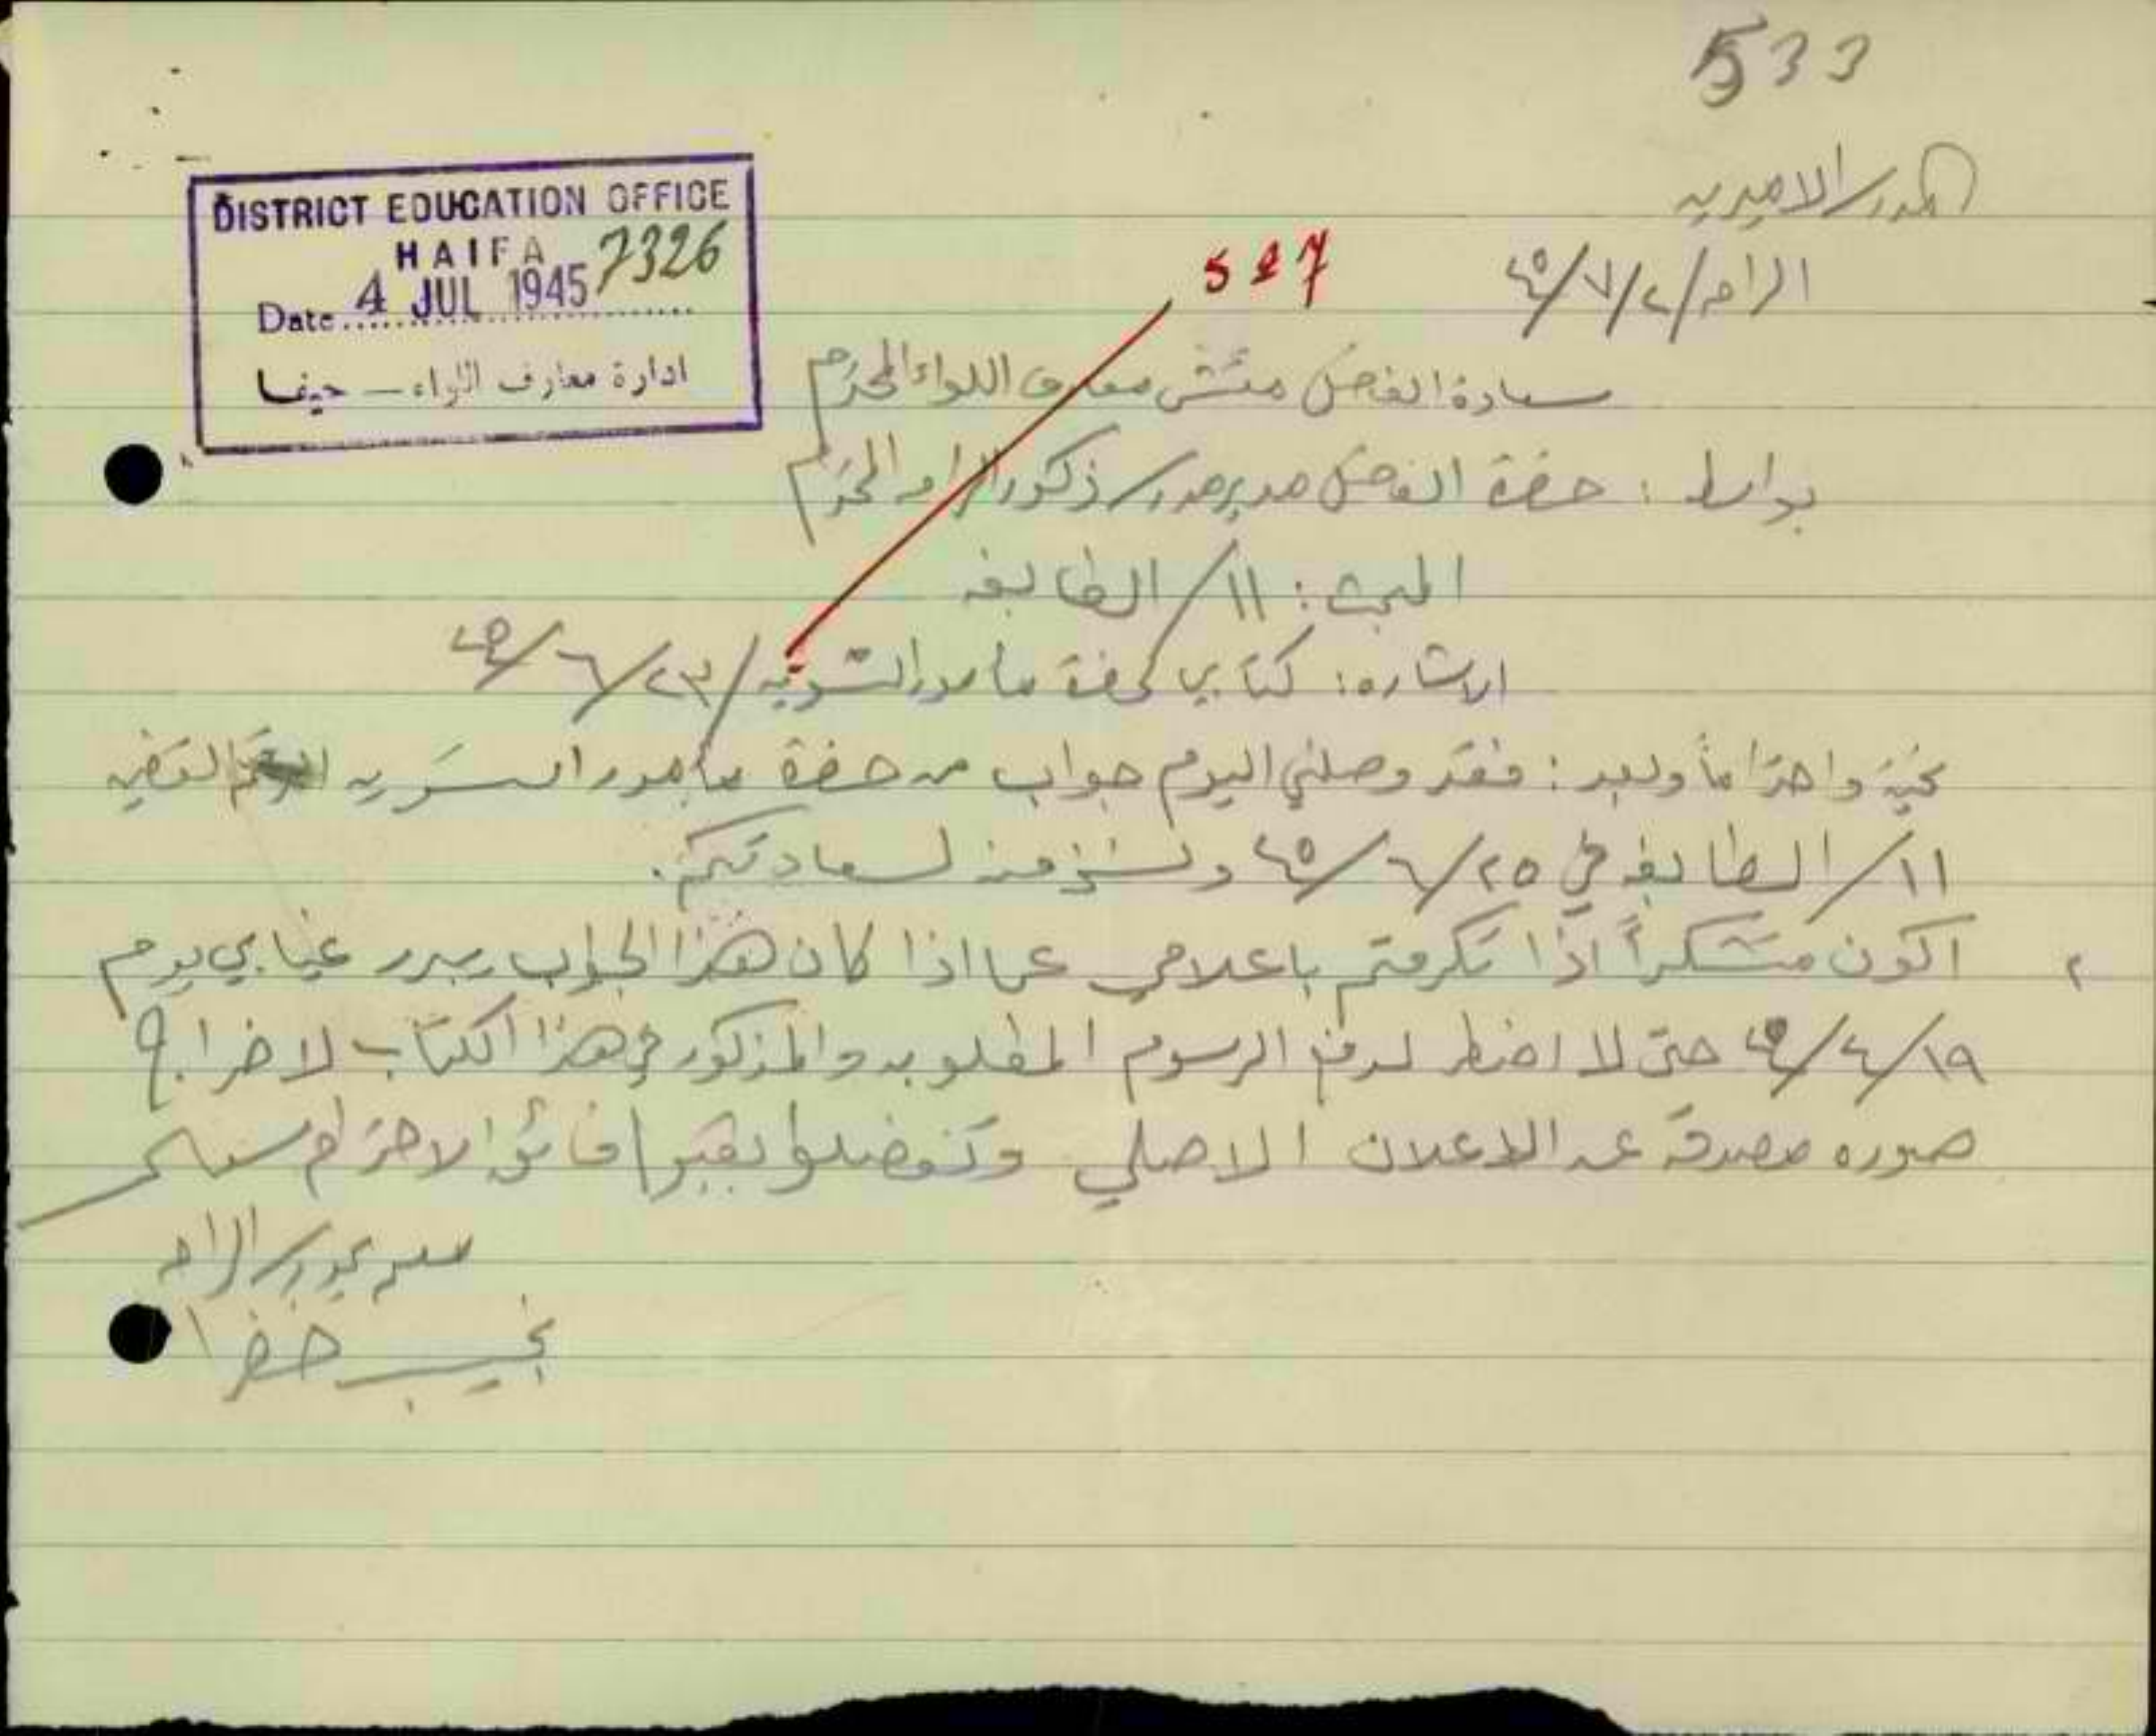 533
المدرسة الاميرية
الرامه/٢/٧/٤٥
DISTRICT EDUCATION OFFICE
HAIFA 7326
Date 4 JUL 1945
ادارة معارف اللواء – حيفا
527
سعادة الفاضل مفتش معارف اللواء المحترم
بواسطة : حضرة الفاضل مدير مدرسة ذكور الرامه المحترم
المبحث : ١١/الطابغه
الاشاره: كتابي لحضرة مأمور التسوية/٢٣/٦/٤٥
تحية واحتراماً وبعد : فقد وصلني اليوم جواب من حضرة مأمور التسويه القضيه
١١/الطابغه في ٢٥/٦/٤٥ ونسخة منه لسعادتكم.
٢ اكون متشكراً اذا تكرمتم باعلامي عما اذا كان هذا الجواب يبرر غيابي يوم
١٩/٤/٤٥ حتى لا اضطر لدفع الرسوم المطلوبه والمذكور في هذا الكتاب لاخراج
صوره مصدقة عن الاعلان الاصلي وتفضلوا بقبول فائق الاحترام سيدي
معلم بمدرسة الرامه
نجيب خضرا